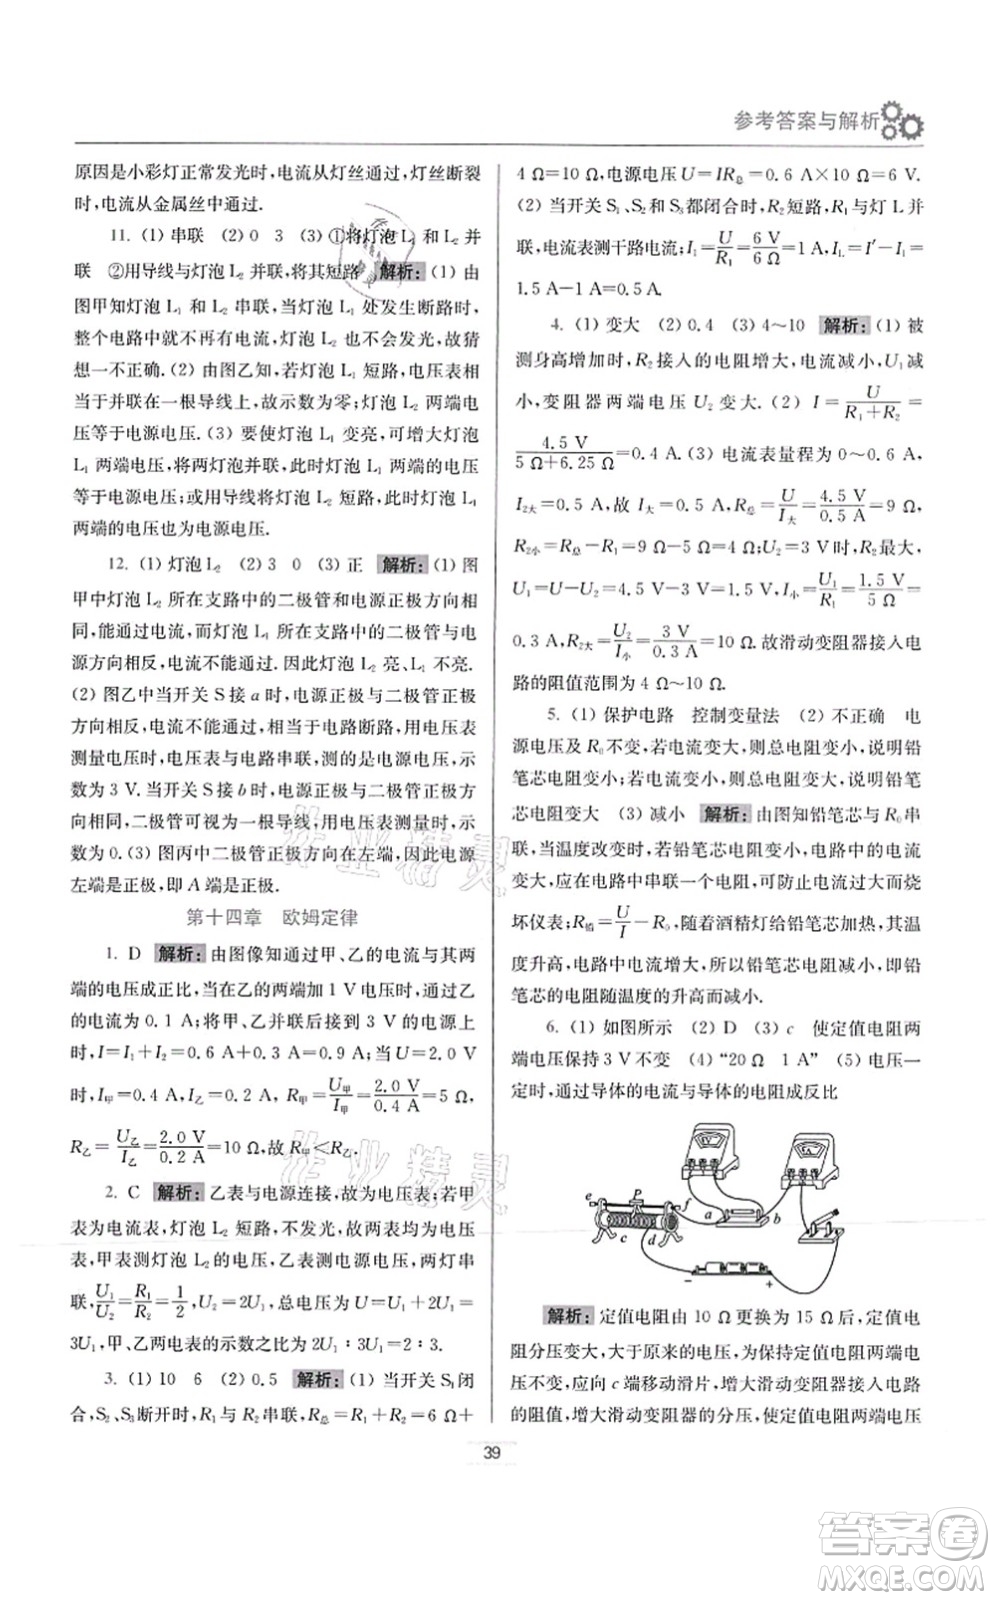 参考答案与解析
原因是小彩灯正常发光时,电流从灯丝上通过,灯丝断裂
时,电流从金属丝中通过.
11. (1) 串联 (2) 0 3 (3) ①将灯泡 L₁ 和 L₂ 并
联 ②用导线与灯泡 L₂ 并联,将其短路 解析: (1) 由
图甲知灯泡 L₁ 和 L₂ 串联,当灯泡 L₁ 处发生断路时,
整个电路中就不会有电流,灯泡 L₂ 也不会发光,故猜
想一不正确.(2) 由图乙知,若灯泡 L₁ 短路,电压表相
当于并联在一根导线上,故示数为零;灯泡 L₂ 两端电
压等于电源电压.(3) 要使灯泡 L₁ 变亮,可增大灯泡
L₁ 两端电压,将两灯泡并联,此时灯泡 L₁ 两端的电压
等于电源电压;或者用导线将灯泡 L₂ 短路,此时灯泡 L₁
两端的电压也为电源电压.
12. (1) 灯泡 L₂ (2) 3 0 (3) 正 解析: (1) 图
甲中灯泡 L₂ 所在支路中的二极管和电源正极方向相
同,能通过电流,而灯泡 L₁ 所在支路中的二极管与电源
方向相反,电流不能通过. 故灯泡 L₂ 亮、L₁ 不亮.
(2) 图乙中当开关 S 接 a 时,电源正极与二极管正极
方向相反,电流不能通过,相当于电路断路,用电压表
测量电压,电压表通过电流表、开关与电路串联,故示
数为 3 V.当开关 S 接 b 时,电源正极与二极管方向相
同,二极管可视为一根导线,用电压表测量时,电压表示
数为 0.(3) 图丙中二极管正极方向在左端,因此电源
左端是正极,即 A 端是正极.
第十四章 欧姆定律
1. D 解析: 由图像知通过甲、乙的电流与其两
端的电压成正比,当在乙的两端加 1 V 电压时,通过乙
的电流为 0.1 A;将甲、乙并联后接到 3 V 的电源上
时,I=I₁+I₂=0.6 A+0.3 A=0.9 A;当 U=2.0 V
时,I甲=0.4 A,I乙=0.2 A,故 R甲=U甲/I甲=2.0 V/0.4 A=5 Ω,
R乙=U乙/I乙=2.0 V/0.2 A=10 Ω,故 R甲<R乙.
2. C 解析: 乙表与电源连接,故为电压表;若甲
表为电流表,灯泡 L₂ 短路,不发光,故两表均为电压
表,甲表测灯泡 L₂ 的电压,乙表测总电压,两灯串
联,U₁/U₂=R₁/R₂=1/2,U₂=2U₁,总电压为 U=U₁+2U₁=
3U₁,甲、乙两电表的示数之比为 2U₁∶3U₁=2∶3.
3. (1) 10 6 (2) 0.5 解析: (1) 当开关 S₁ 闭
合,S₂、S₃ 断开时,R₁ 与 R₂ 串联,R总=R₁+R₂=6 Ω+
4 Ω=10 Ω,电源电压 U=IR总=0.6 A×10 Ω=6 V.
(2) 当开关 S₁、S₂ 和 S₃ 都闭合时,R₂ 短路,R₁ 与灯 L 并
联,电流表测干路电流;I₁=U/R₁=6 V/6 Ω=1 A,IL=I′−I₁=
1.5 A−1 A=0.5 A.
4. (1) 变大 (2) 0.4 (3) 4～10 解析: (1) 被
测身高增加时,R₂ 接入的电阻增大,电流减小,U₁ 减
小,变阻器两端电压 U₂ 变大.(2) I=U/(R₁+R₂)=
4.5 V/(5 Ω+6.25 Ω)=0.4 A.(3) 电流表量程为 0～0.6 A,
I₂大=0.5 A,故 I大=0.5 A,R总=U/I大=4.5 V/0.5 A=9 Ω,
R₂小=R总−R₁=9 Ω−5 Ω=4 Ω;U₂=3 V 时,R₂最大,
U₁=U−U₂=4.5 V−3 V=1.5 V,I小=U₁/R₁=1.5 V/5 Ω=
0.3 A,R₂大=U₂/I小=3 V/0.3 A=10 Ω.故滑动变阻器接入电
路的阻值范围为 4 Ω～10 Ω.
5. (1) 保护电路 控制变量法 (2) 不正确 电
源电压及 R₀不变,若电流变大,则总电阻变小,说明铅
笔芯电阻变小;若电流变小,则总电阻变大,说明铅笔
芯电阻变大 (3) 减小 解析: 由图知铅笔芯与 R₀串
联,当温度改变时,若铅笔芯电阻变小,电路中的电流
会变大,电路中串联一个电阻,可以防止电流过大而烧
坏仪表;R铅=U/I−R₀,随着酒精灯给铅笔芯加热,其温
度升高,电路中电流增大,所以铅笔芯电阻减小,即铅
笔芯的电阻随温度的升高而减小.
6. (1) 如图所示 (2) D (3) c 使定值电阻两
端电压保持 3 V 不变 (4) “20 Ω 1 A” (5) 电压一
定时,通过导体的电流与导体的电阻成反比
V
A
e
P
f
c
d
a
b
−
+
解析: 定值电阻由 10 Ω 更换为 15 Ω 后,定值电
阻分压变大,大于原来的电压,为使定值电阻两端电压
不变,应向 c 端移动滑片,增大滑动变阻器接入电路的
的阻值,增大滑动变阻器的分压,使定值电阻两端电压
39
作业精灵
作业精灵
答案卷
MXQE.COM